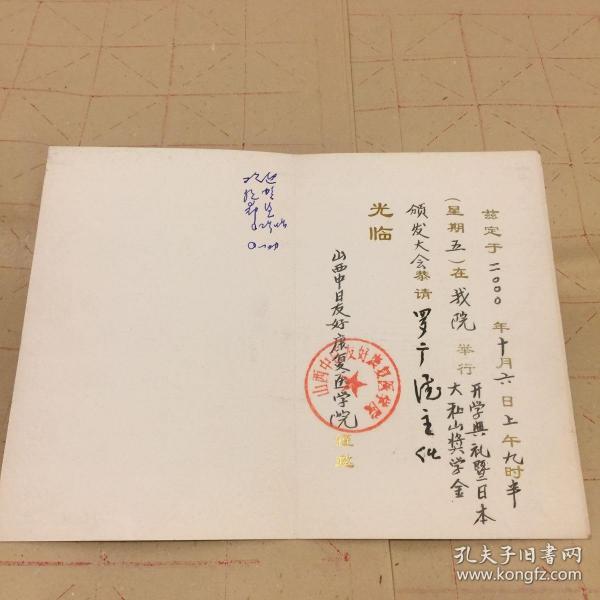 兹定于二〇〇〇年十月六日上午九时半
(星期五)在我院举行开学典礼暨日本
大和山奖学金
颁发大会恭请罗广德主任
光临
山西中日友好康复医学院
山西中日友好康复医学院
孔夫子旧书网
www.kongfz.com